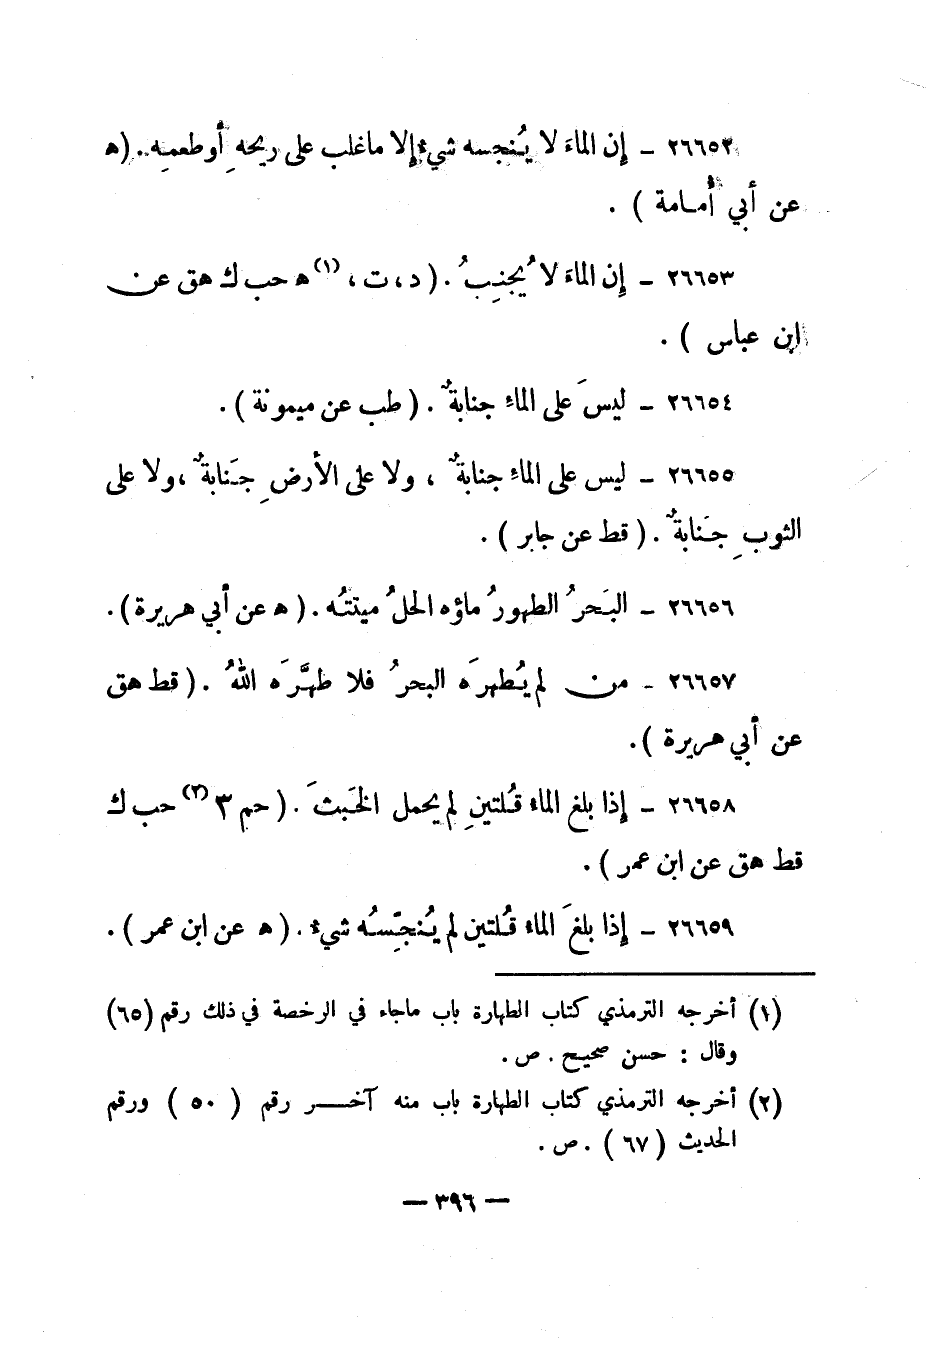 ٢٦٦٥٢ - إِن الماءَ لا يُنجسه شيءٌ إلا ماغلب على ريحهِ أو طعمهِ .. (ه
عن أبي أُمامة ) .
٢٦٦٥٣ - إِن الماءَ لا يُجنِبُ . ( د ، ت ، (١) ه حب ك هق عن
ابن عباس ) .
٢٦٦٥٤ - ليسَ على الماءِ جنابةٌ . ( طب عن ميمونة ) .
٢٦٦٥٥ - ليس على الماءِ جنابةٌ ، ولا على الأرضِ جَنابةٌ ، ولا على
الثوبِ جَنابةٌ . ( قط عن جابر ) .
٢٦٦٥٦ - البَحرُ الطهورُ ماؤه الحلُ ميتتُه . ( ه عن أبي هريرة ) .
٢٦٦٥٧ - من لم يُطهرَه البحرُ فلا طهَّرَه اللهُ . ( قط هق
عن أبي هريرة ) .
٢٦٦٥٨ - إِذا بلغ الماء قُلتينِ لم يحمل الخَبثَ . ( حم ٣ (٢) حب ك
قط هق عن ابن عمر ) .
٢٦٦٥٩ - إِذا بلغَ الماء قُلتين لم يُنجّسِهُ شيء . ( ه عن ابن عمر ) .
(١) أخرجه الترمذي كتاب الطهارة باب ماجاء في الرخصة في ذلك رقم (٦٥)
وقال : حسن صحيح . ص .
(٢) أخرجه الترمذي كتاب الطهارة باب منه آخر رقم ( ٥٠ ) ورقم
الحديث ( ٦٧ ) . ص .
— ٣٩٦ —